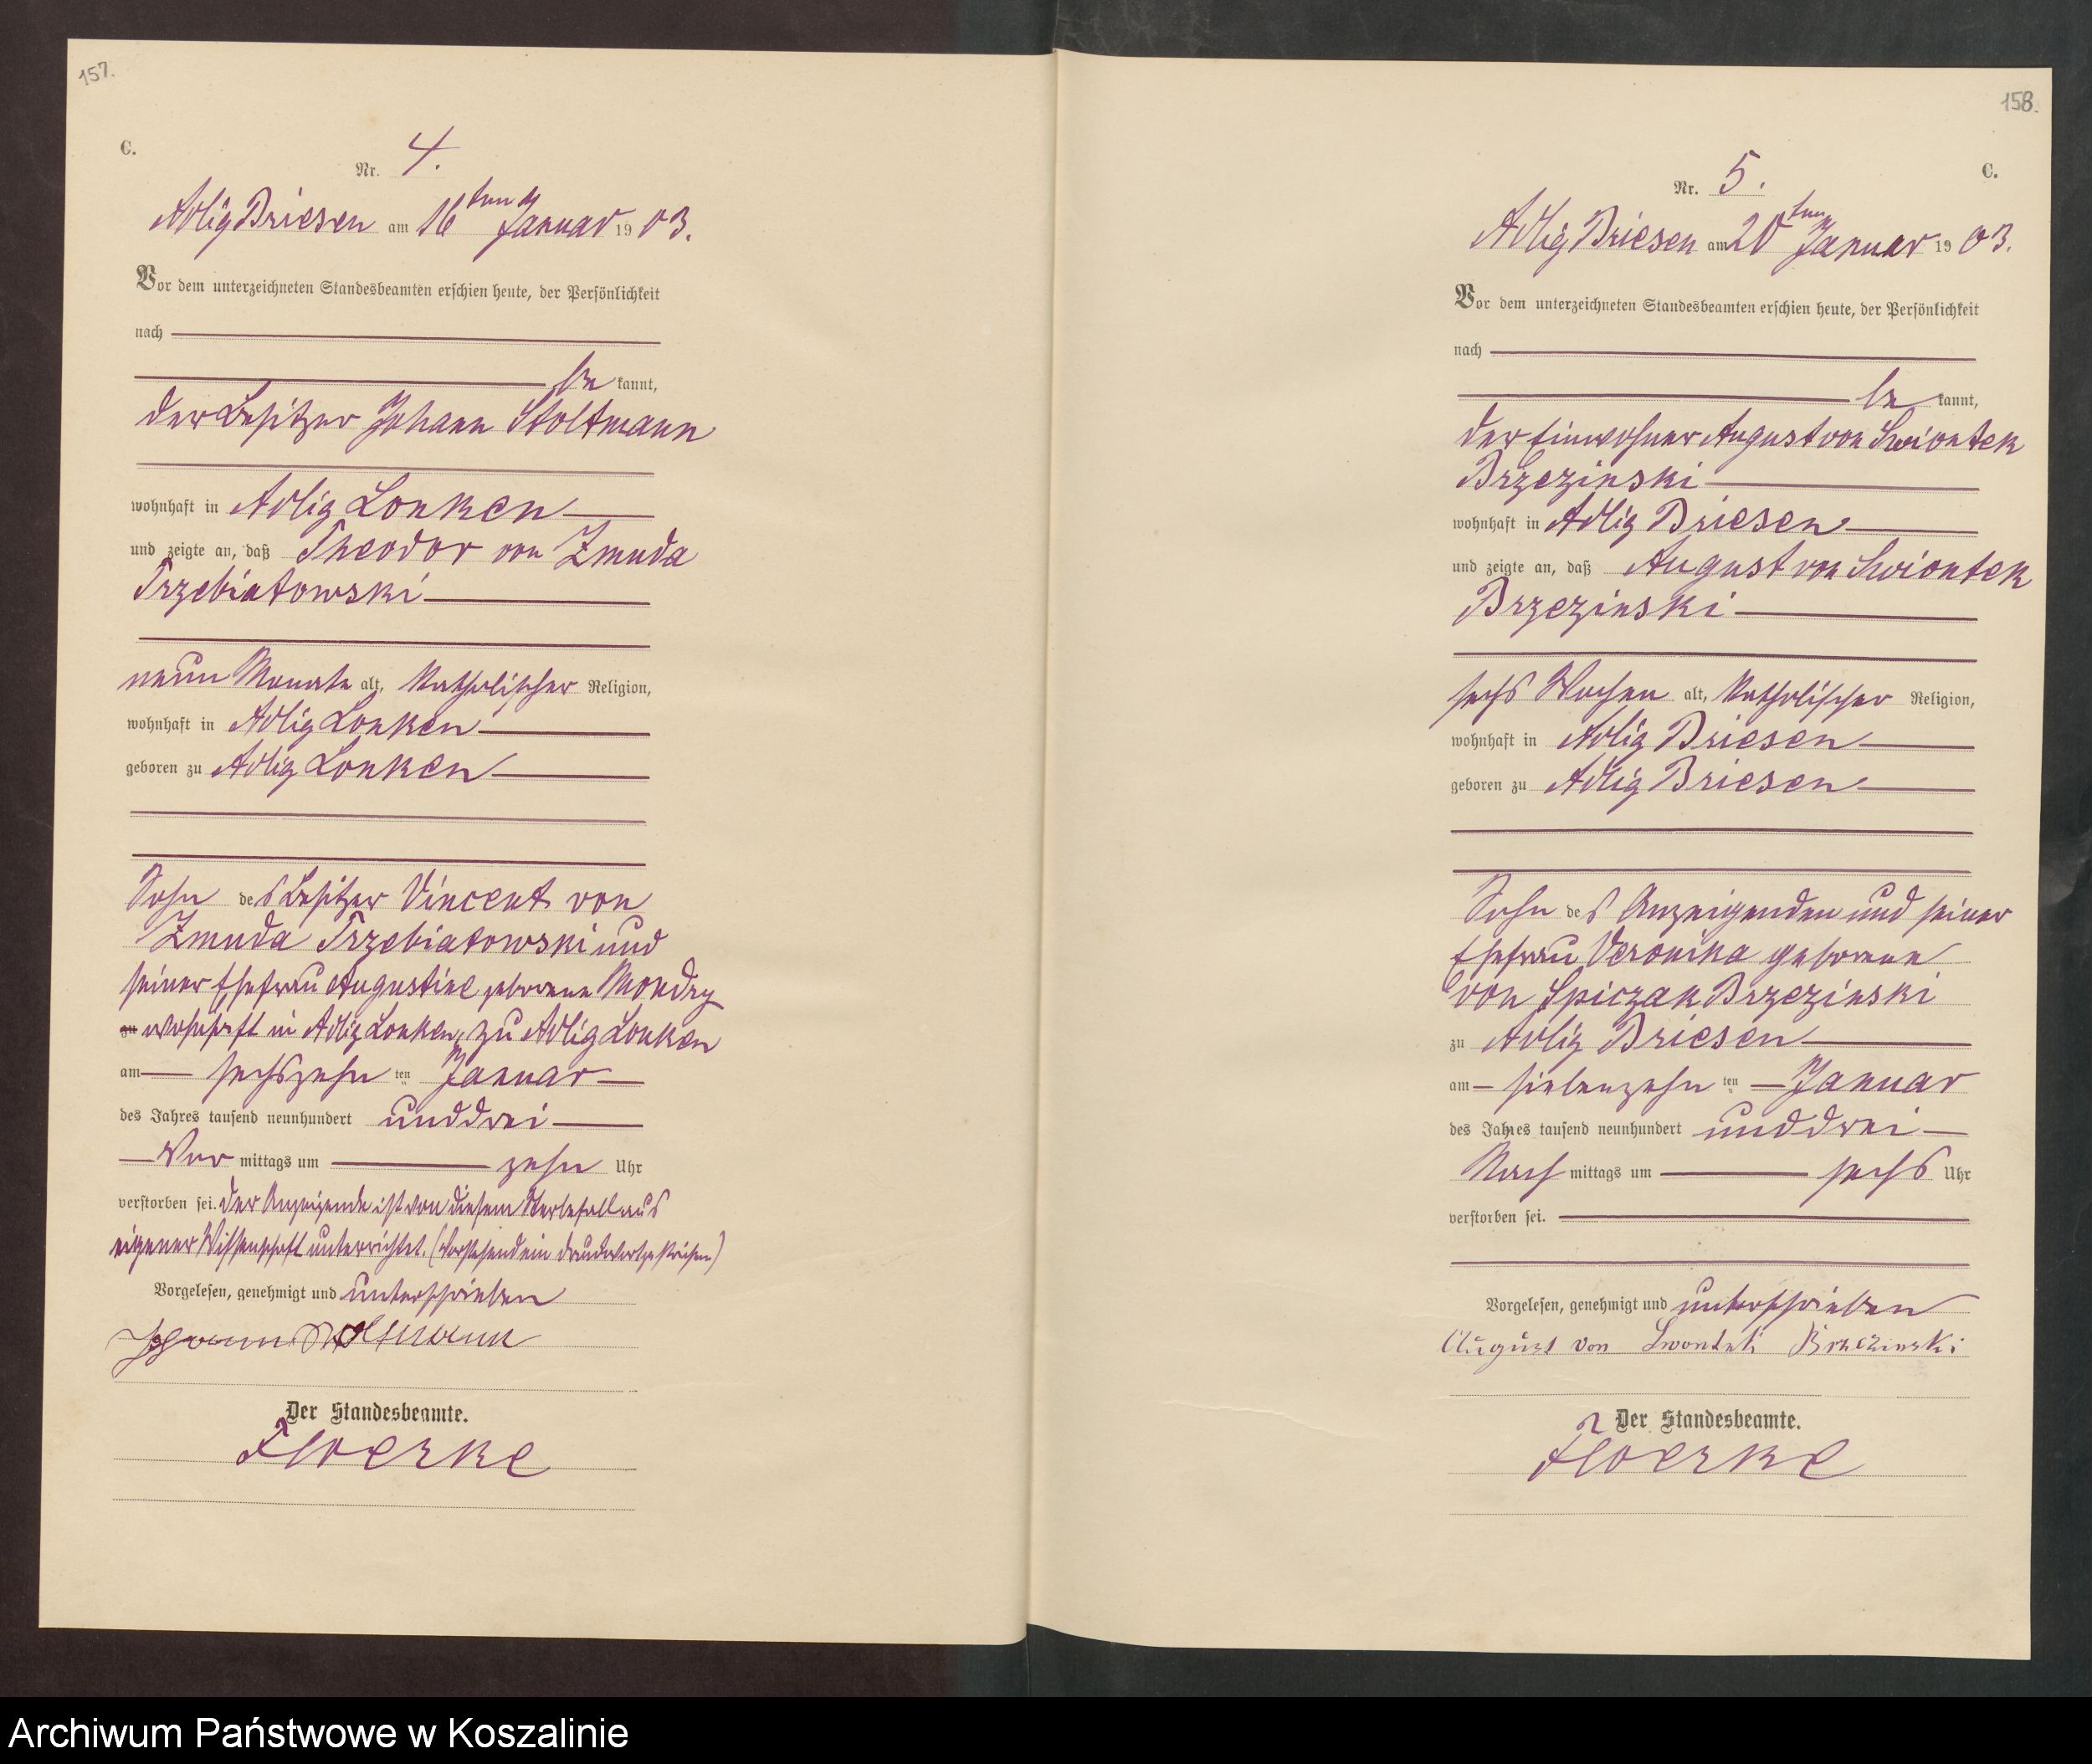 157.
C.
Nr. 4.
Adlig Briesen am 16ten Januar 1903.
Vor dem unterzeichneten Standesbeamten erschien heute, der Persönlichkeit
nach
be kannt,
der Besitzer Johann Stoltmann
wohnhaft in Adlig Lonken
und zeigte an, daß Theodor von Zmuda
Trzebiatowski
neun Monate alt, katholischer Religion,
wohnhaft in Adlig Lonken
geboren zu Adlig Lonken
Sohn des Besitzer Vincent von
Zmuda Trzebiatowski und
seiner Ehefrau Augustine geborene Mondry
zu wohnhaft in Adlig Lonken, zu Adlig Lonken
am sechszehn ten Januar
des Jahres tausend neunhundert und drei
Vor mittags um zehn Uhr
verstorben sei. Der Anzeigende ist von diesem Sterbefall aus
eigener Wissenschaft unterrichtet. (Vorstehend ein Druckwort gestrichen)
Vorgelesen, genehmigt und unterschrieben
Johann Stoltmann
Der Standesbeamte.
Floerke
158.
C.
Nr. 5.
Adlig Briesen am 20ten Januar 1903.
Vor dem unterzeichneten Standesbeamten erschien heute, der Persönlichkeit
nach
be kannt,
der Einwohner August von Swiontek
Brzezinski
wohnhaft in Adlig Briesen
und zeigte an, daß August von Swiontek
Brzezinski
sechs Wochen alt, katholischer Religion,
wohnhaft in Adlig Briesen
geboren zu Adlig Briesen
Sohn des Anzeigenden und seiner
Ehefrau Veronika geborene
von Spiczak Brzezinski
zu Adlig Briesen
am siebenzehn ten Januar
des Jahres tausend neunhundert und drei
Nach mittags um sechs Uhr
verstorben sei.
Vorgelesen, genehmigt und unterschrieben
August von Brzezinski
Der Standesbeamte.
Floerke
Archiwum Państwowe w Koszalinie